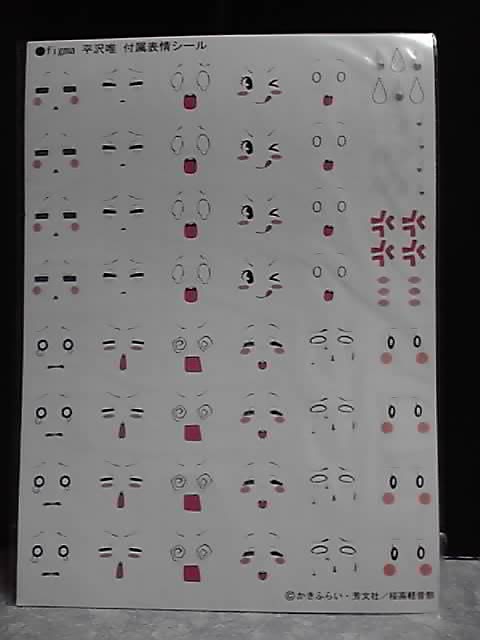 ●figma 平沢唯 付属表情シール
©かきふらい・芳文社／桜高軽音部